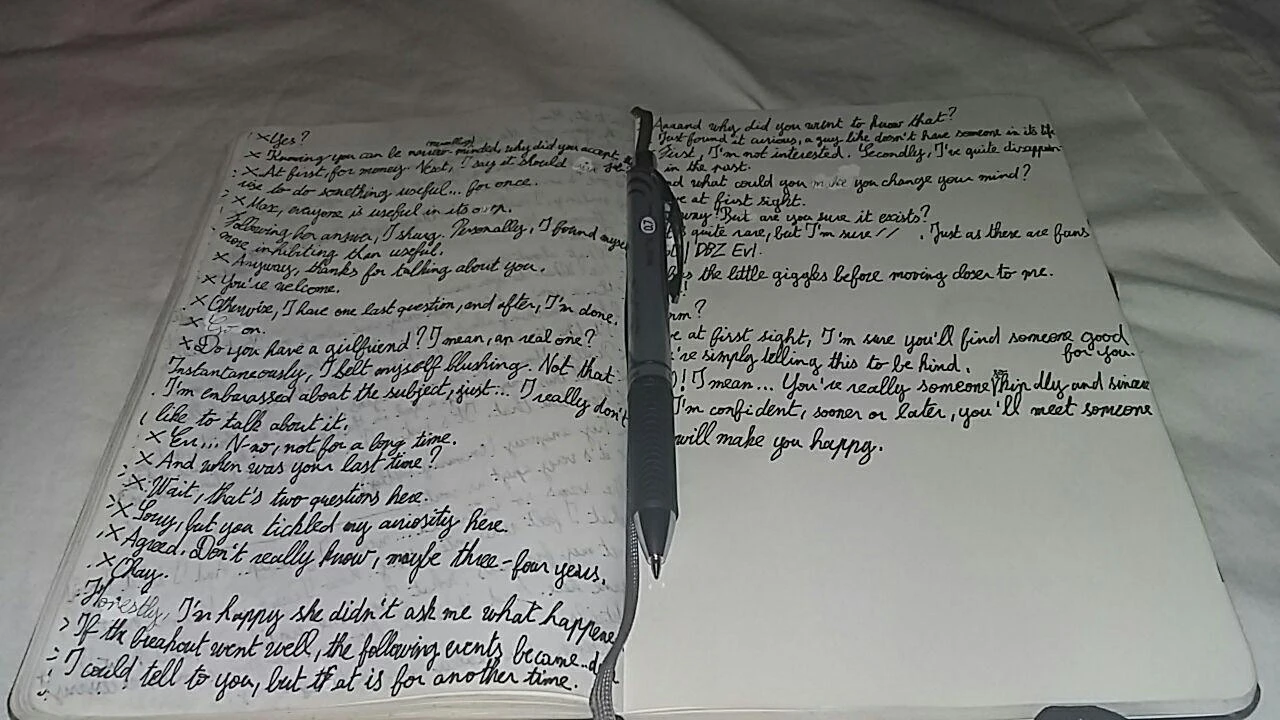 × Yes?
narrow
× Knowing you can be minded, why did you accept
× At first, for money. Next, I say it should
use to do something useful... for once.
× Max, everyone is useful in its own.
Following her answer, I shrug. Personally, I found myse
more inhibiting than useful.
× Anyway, thanks for talking about you.
× You're welcome.
× Otherwise, I have one last question, and after, I'm done.
× Go on.
× Do you have a girlfriend? I mean, an real one?
Instantaneously, I felt myself blushing. Not that
I'm embarassed about the subject, just... I really don't
like to talk about it.
× Err... N-no, not for a long time.
× And when was your last time?
× Wait, that's two questions here.
× Sorry, but you tickled my curiosity here.
× Agreed. Don't really know, maybe three-four years.
× Okay.
Honestly, I'm happy she didn't ask me what happene
If the breakout went well, the following events became..
I could tell to you, but it is for another time.
Aaaand why did you want to know that?
Just found it curious, a guy like doesn't have someone in its life
First, I'm not interested. Secondly, I've quite disappoin
in the past.
nd what could you make you change your mind?
ve at first sight.
But are you sure it exists?
quite rare, but I'm sure // . Just as there are fans
DBZ Evl.
the little giggles before moving closer to me.
mm?
ve at first sight, I'm sure you'll find someone good
for you.
're simply telling this to be kind.
! I mean... You're really someone dly and sincere
I'm confident, sooner or later, you'll meet someone
will make you happy.